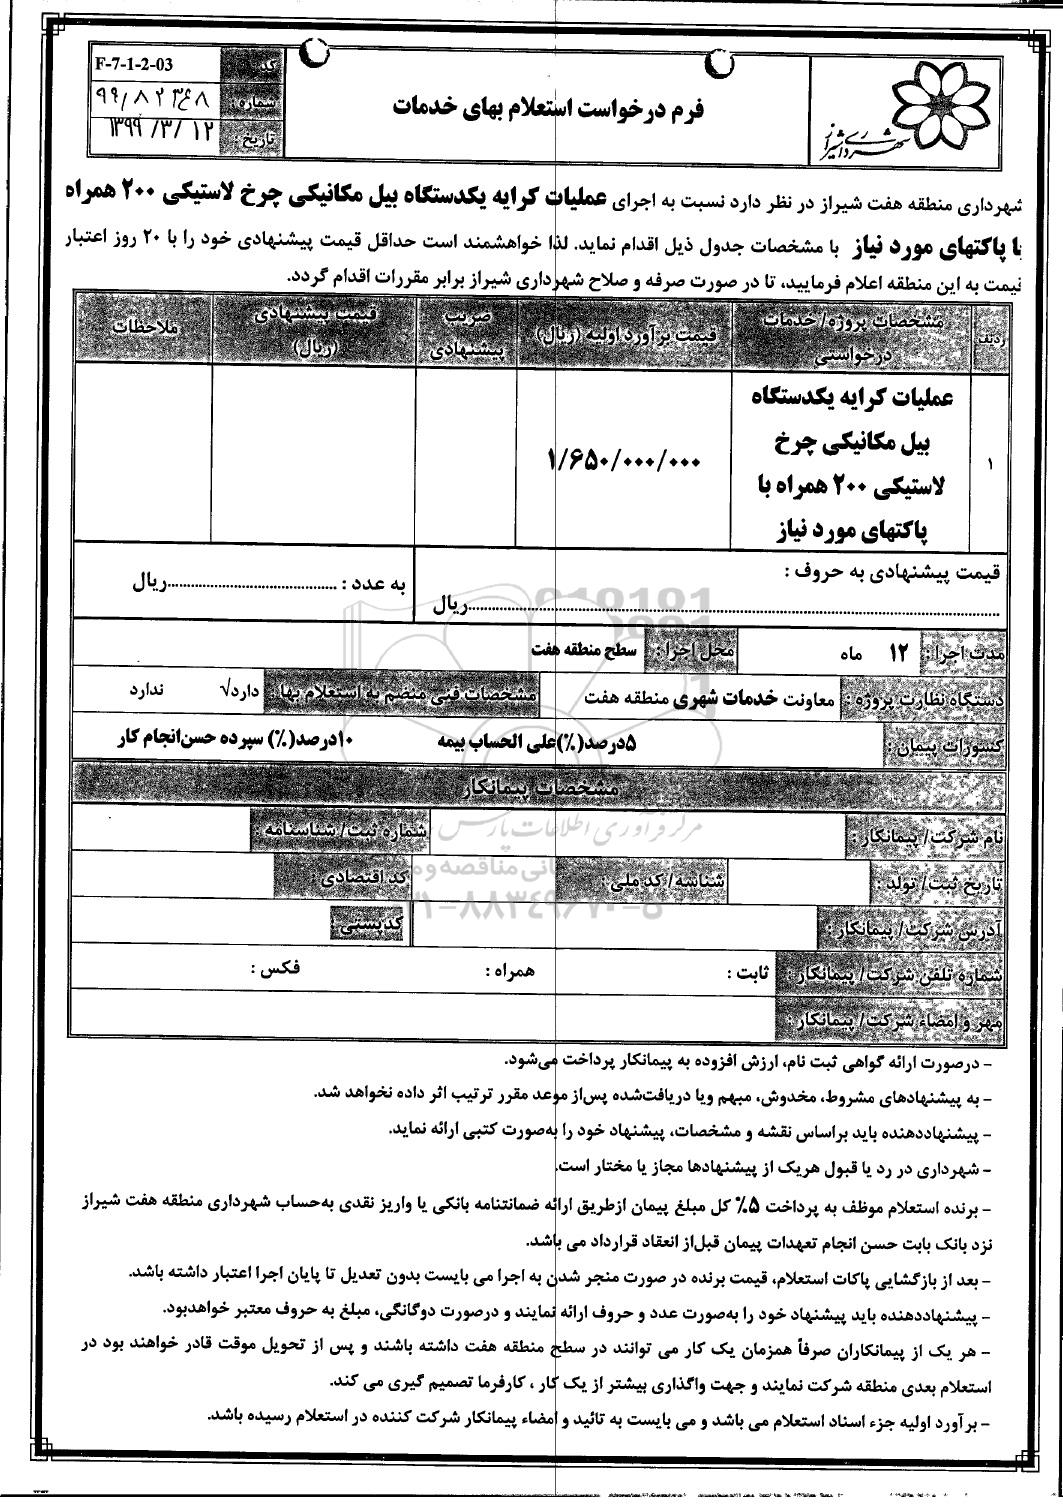 کد: F-7-1-2-03
شماره: ۹۹/۸۲۳۶۸
تاریخ: ۱۳۹۹/۳/۱۲
فرم درخواست استعلام بهای خدمات
شهرداری شیراز
شهرداری منطقه هفت شیراز در نظر دارد نسبت به اجرای عملیات کرایه یکدستگاه بیل مکانیکی چرخ لاستیکی ۲۰۰ همراه
با پاکتهای مورد نیاز با مشخصات جدول ذیل اقدام نماید. لذا خواهشمند است حداقل قیمت پیشنهادی خود را با ۲۰ روز اعتبار
قیمت به این منطقه اعلام فرمایید، تا در صورت صرفه و صلاح شهرداری شیراز برابر مقررات اقدام گردد.
ردیف
مشخصات پروژه/ خدمات
درخواستی
قیمت برآورد اولیه (ریال)
ضریب
پیشنهادی
قیمت پیشنهادی
(ریال)
ملاحظات
۱
عملیات کرایه یکدستگاه
بیل مکانیکی چرخ
لاستیکی ۲۰۰ همراه با
پاکتهای مورد نیاز
۱/۶۵۰/۰۰۰/۰۰۰
قیمت پیشنهادی به حروف :
..........ریال
به عدد : ..........ریال
مدت اجرا : ۱۲ ماه
محل اجرا : سطح منطقه هفت
دستگاه نظارت پروژه : معاونت خدمات شهری منطقه هفت
مشخصات فنی منضم به استعلام بها: دارد√ ندارد
کسورات پیمان : ۵درصد(٪)علی الحساب بیمه ۱۰درصد(٪) سپرده حسن‌انجام کار
مشخصات پیمانکار
نام شرکت/ پیمانکار :
شماره ثبت/ شناسنامه :
تاریخ ثبت/ تولد :
شناسه/ کد ملی :
کد اقتصادی :
آدرس شرکت/ پیمانکار :
کدپستی :
شماره تلفن شرکت/ پیمانکار : ثابت : همراه : فکس :
مهر و امضاء شرکت/ پیمانکار :
مرکز فرآوری اطلاعات پارس
– درصورت ارائه گواهی ثبت نام، ارزش افزوده به پیمانکار پرداخت می‌شود.
– به پیشنهادهای مشروط، مخدوش، مبهم ویا دریافت‌شده پس‌از موعد مقرر ترتیب اثر داده نخواهد شد.
– پیشنهاددهنده باید براساس نقشه و مشخصات، پیشنهاد خود را به‌صورت کتبی ارائه نماید.
– شهرداری در رد یا قبول هریک از پیشنهادها مجاز یا مختار است.
– برنده استعلام موظف به پرداخت ۵٪ کل مبلغ پیمان ازطریق ارائه ضمانتنامه بانکی یا واریز نقدی به‌حساب شهرداری منطقه هفت شیراز
نزد بانک بابت حسن انجام تعهدات پیمان قبل‌از انعقاد قرارداد می باشد.
– بعد از بازگشایی پاکات استعلام، قیمت برنده در صورت منجر شدن به اجرا می بایست بدون تعدیل تا پایان اجرا اعتبار داشته باشد.
– پیشنهاددهنده باید پیشنهاد خود را به‌صورت عدد و حروف ارائه نمایند و درصورت دوگانگی، مبلغ به حروف معتبر خواهدبود.
– هر یک از پیمانکاران صرفاً همزمان یک کار می توانند در سطح منطقه هفت داشته باشند و پس از تحویل موقت قادر خواهند بود در
استعلام بعدی منطقه شرکت نمایند و جهت واگذاری بیشتر از یک کار ، کارفرما تصمیم گیری می کند.
– برآورد اولیه جزء اسناد استعلام می باشد و می بایست به تائید و امضاء پیمانکار شرکت کننده در استعلام رسیده باشد.